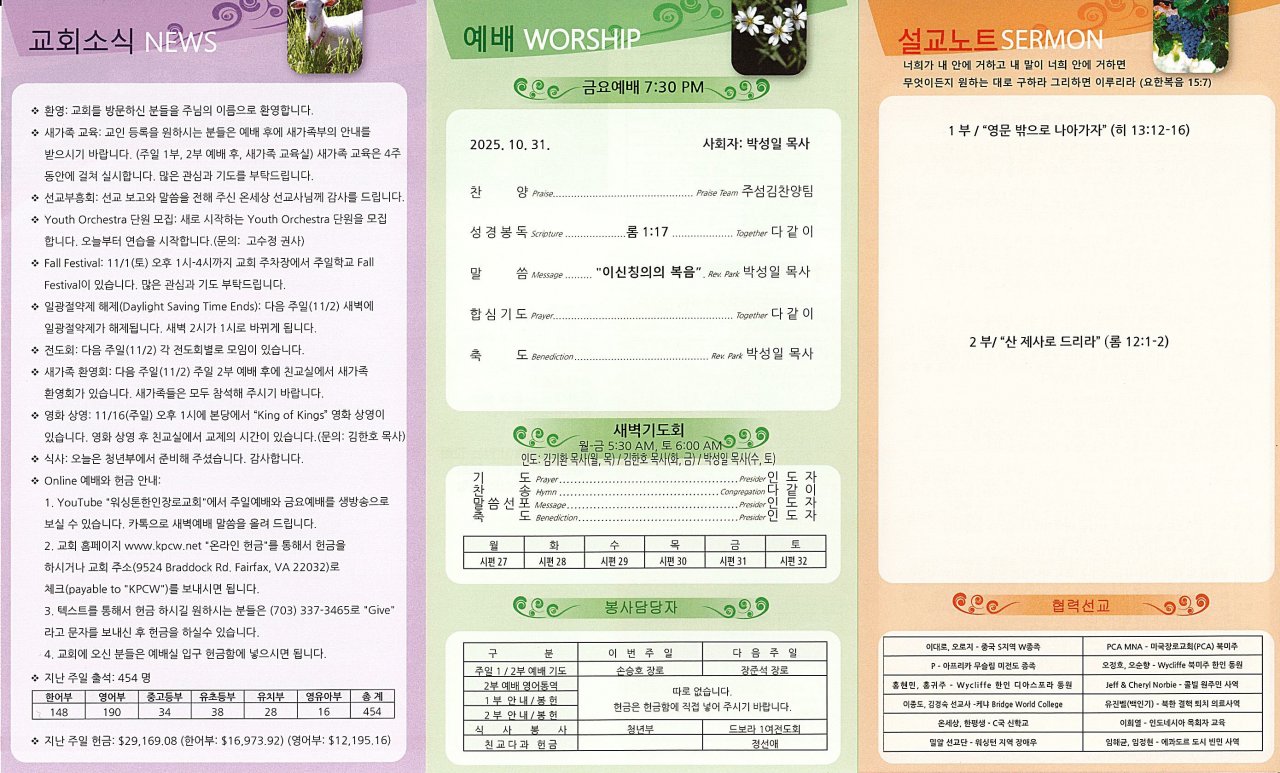 교회소식 NEWS
❖ 환영: 교회를 방문하신 분들을 주님의 이름으로 환영합니다.
❖ 새가족 교육: 교인 등록을 원하시는 분들은 예배 후에 새가족부의 안내를
받으시기 바랍니다. (주일 1부, 2부 예배 후, 새가족 교육실) 새가족 교육은 4주
동안에 걸쳐 실시합니다. 많은 관심과 기도를 부탁드립니다.
❖ 선교부흥회: 선교 보고와 말씀을 전해 주신 온세상 선교사님께 감사를 드립니다.
❖ Youth Orchestra 단원모집: 새로 시작하는 Youth Orchestra 단원을 모집
합니다. 오늘부터 연습을 시작합니다.(문의: 고수정 권사)
❖ Fall Festival: 11/1(토) 오후 1시-4시까지 교회 주차장에서 주일학교 Fall
Festival이 있습니다. 많은 관심과 기도 부탁드립니다.
❖ 일광절약제 해제(Daylight Saving Time Ends): 다음 주일(11/2) 새벽에
일광절약제가 해제됩니다. 새벽 2시가 1시로 바뀌게 됩니다.
❖ 전도회: 다음 주일(11/2) 각 전도회별로 모임이 있습니다.
❖ 새가족 환영회: 다음 주일(11/2) 주일 2부 예배 후에 친교실에서 새가족
환영회가 있습니다. 새가족들은 모두 참석해 주시기 바랍니다.
❖ 영화 상영: 11/16(주일) 오후 1시에 본당에서 "King of Kings" 영화 상영이
있습니다. 영화 상영 후 친교실에서 교제의 시간이 있습니다.(문의: 김한호 목사)
❖ 식사: 오늘은 청년부에서 준비해 주셨습니다. 감사합니다.
❖ Online 예배와 헌금 안내
1. YouTube "워싱톤한인장로교회"에서 주일예배와 금요예배를 생방송으로
보실 수 있습니다. 카톡으로 새벽예배 말씀을 올려 드립니다.
2. 교회 홈페이지 www.kpcw.net "온라인 헌금"를 통해서 헌금을
하시거나 교회 주소(9524 Braddock Rd. Fairfax, VA 22032)로
체크(payable to "KPCW")를 보내시면 됩니다.
3. 텍스트를 통해서 헌금 하시길 원하시는 분들은 (703) 337-3465로 "Give"
라고 문자를 보내신 후 헌금을 하실수 있습니다.
4. 교회에 오신 분들은 예배실 입구 헌금함에 넣으시면 됩니다.
❖ 지난 주일 출석: 454 명
한어부 영어부 중고등부 유초등부 유치부 영유아부 총 계
148 190 34 38 28 16 454
❖ 지난 주일 헌금: $29,169.08 (한어부: $16,973.92) (영어부: $12,195.16)
예배 WORSHIP
금요예배 7:30 PM
2025. 10. 31. 사회자: 박성일 목사
찬 양 Praise Praise Team 주섬김찬양팀
성 경 봉 독 Scripture 롬 1:17 Together 다 같 이
말 씀 Message "이신칭의의 복음" Rev. Park 박성일 목사
합 심 기 도 Prayer Together 다 같 이
축 도 Benediction Rev. Park 박성일 목사
새벽기도회
월-금 5:30 AM, 토 6:00 AM
인도: 김기환 목사(월, 목) / 김한호 목사(화, 금) / 박성일 목사(수, 토)
기 도 Prayer Presider 인 도 자
찬 송 Hymn Congregation 다 같 이
말 씀 선 포 Message Presider 인 도 자
축 도 Benediction Presider 인 도 자
월 화 수 목 금 토
시편 27 시편 28 시편 29 시편 30 시편 31 시편 32
봉사담당자
구 분 이 번 주 일 다 음 주 일
주일 1 / 2부 예배 기도 손승호 장로 장준석 장로
2부 예배 영어통역
1 부 안 내 / 봉 헌
2 부 안 내 / 봉 헌
따로 없습니다.
헌금은 헌금함에 직접 넣어 주시기 바랍니다.
식 사 봉 사 청년부 드보라 1여전도회
친 교 다 과 헌 금 정선애
설교노트 SERMON
너희가 내 안에 거하고 내 말이 너희 안에 거하면
무엇이든지 원하는 대로 구하라 그리하면 이루리라 (요한복음 15:7)
1 부 / "영문 밖으로 나아가자" (히 13:12-16)
2 부/ "산 제사로 드리라" (롬 12:1-2)
협력선교
이대로, 오로지 - 중국 S지역 W종족 PCA MNA - 미국장로교회(PCA) 북미주
P - 아프리카 무슬림 미전도 종족 오은호, 오순향 - Wycliffe 북미주 한인 동원
홍현민, 홍귀주 - Wycliffe 한인 디아스포라 동원 Jeff & Cheryl Norbie - 콜빌 원주민 사역
이종도, 김경숙 선교사 -케냐 Bridge World College 유진벨(백인기) - 북한 결핵 퇴치 의료사역
온세상, 한평생 - C국 신학교 이희열 - 인도네시아 목회자 교육
밀알 선교단 - 워싱턴 지역 장애우 임해균, 임정현 - 에콰도르 도시 빈민 사역